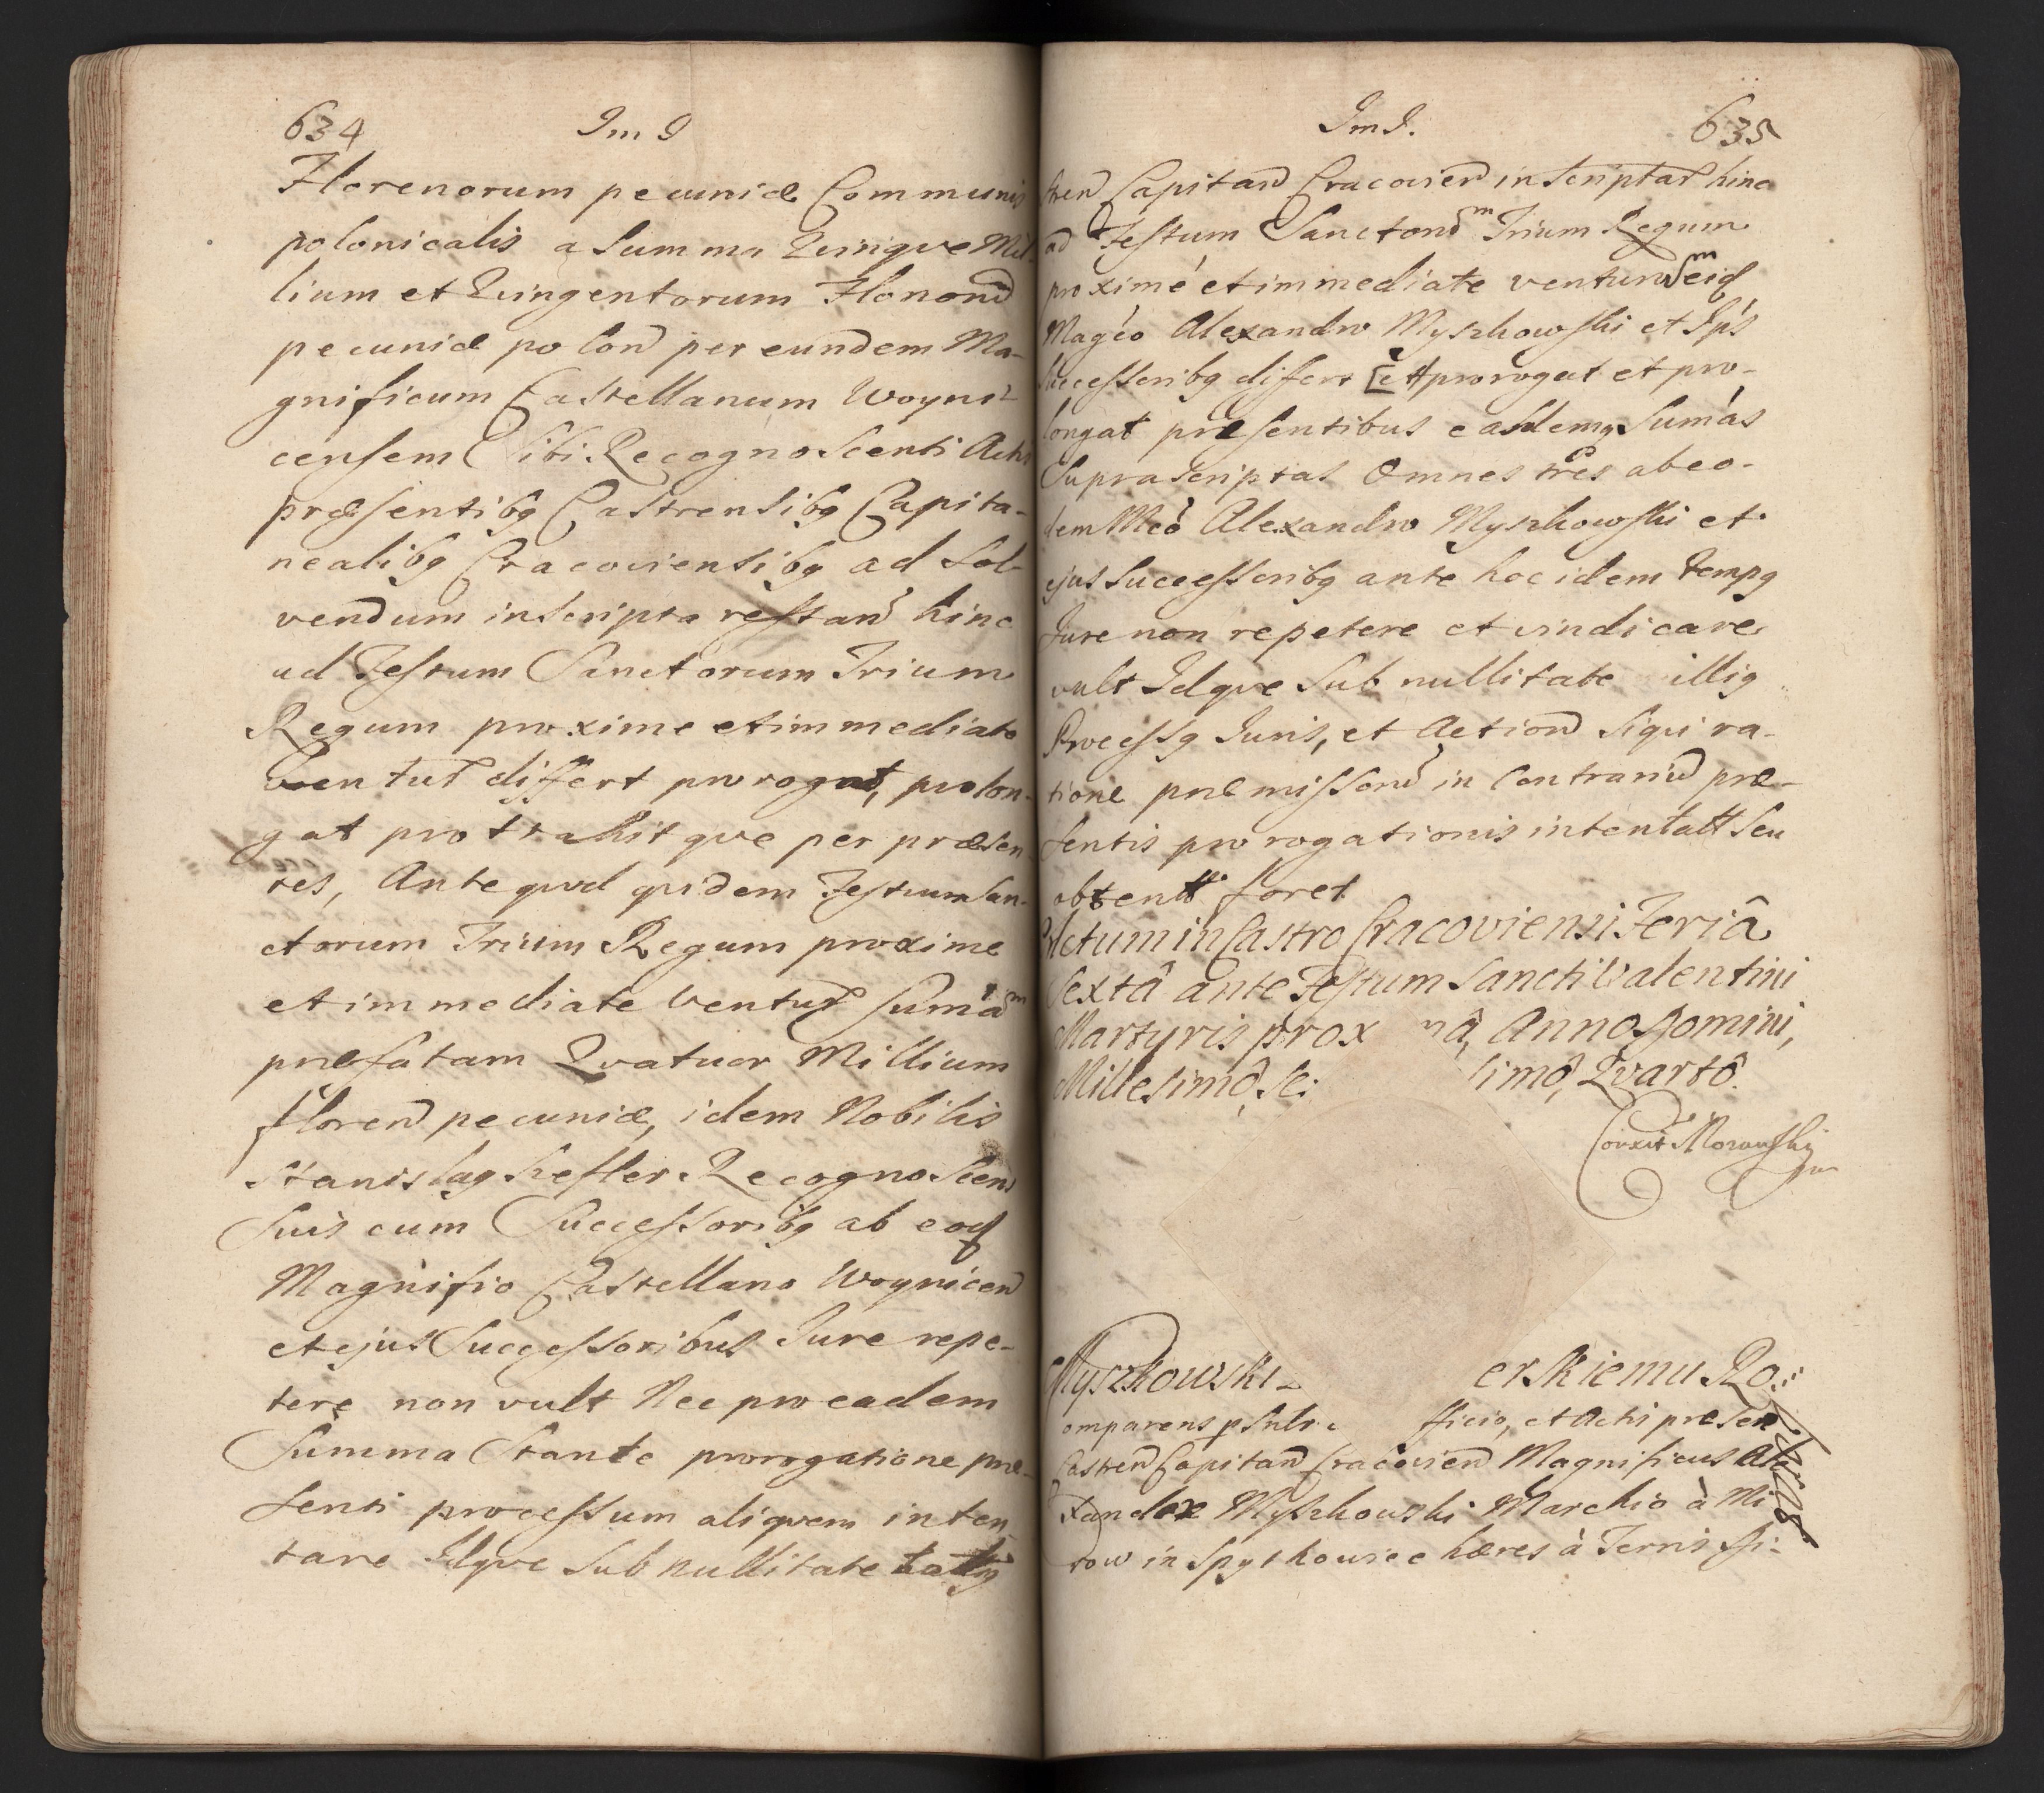 634 Im J
Florenorum pecuniæ Communis
polonicalis a Summa Qvinqve Mil-
lium et Qvingentorum Florenor̃
pecuniæ polon̄ per eundem Ma-
gnificum Castellanum Woyni-
censem Sibi Recognoscenti Actis
præsentibq Castrensibq Capita-
nealibq Cracoviensibq ad Sol-
vendum inscripta restan̄ hinc
ad Festum Sanctorum Trium
Regum proxime et immediate
ventur̄ differt prorogat, prolon-
gat protrahitqve per præsen-
tes, Ante qvod qvidem Festum San-
ctorum Trium Regum proxime
et immediate ventur̄ sum̄am
præfatam Qvatuor Millium
floren̄ pecuniæ, idem Nobilis
Stanislaq Recognoscens
Suis cum Successoribq ab eod̄
Magnifico Castellano Woynicen̄
et ejus Successoribus Jure repe-
tere non vult Nec pro eadem
Summa Stante prorogatione præ-
senti processum aliqvem inten-
tare Idqve Sub nullitate
Im J. 635
stren̄ Capitan̄ Cracovien̄ inscriptas hinc
ad Festum Sanctor̄m Trium Regum
proximè et immediate ventur̄m eid̄
Magc̄o Alexandro Myszkowski et Ips̄
Successoribq differt [et] prorogat et pro-
longat præsentibus easdemq Sum̄as
Suprascriptas Omnes tres ab eo-
dem Mc̄o Alexandro Myszkowski et
ejus Successoribq ante hoc idem tempq
Jure non repetere et vindicare
vult Idqve Sub nullitate illiq
Processq Juris, et Action̄ siqui ra-
tione præmissor̄ in Contrariū præ-
sentis prorogationis intentatt̄ Seu
obtentt̄ foret.
Actum in Castro Cracoviensi Feriâ
Sextâ ante Festum Sancti Valentini
Martyris prox mâ, Anno Domini,
Millesimô, se: simô, Qvartô.
Correxit Morawski
Myszkowski erskiemu Ro:
omparens fficio, et Actis præsen
Castren̄ Capitan̄ Cracovien̄ Magnificus Ale
xander Myszkowski Marchio à Mi
row in Spytkowice hæres à Terris